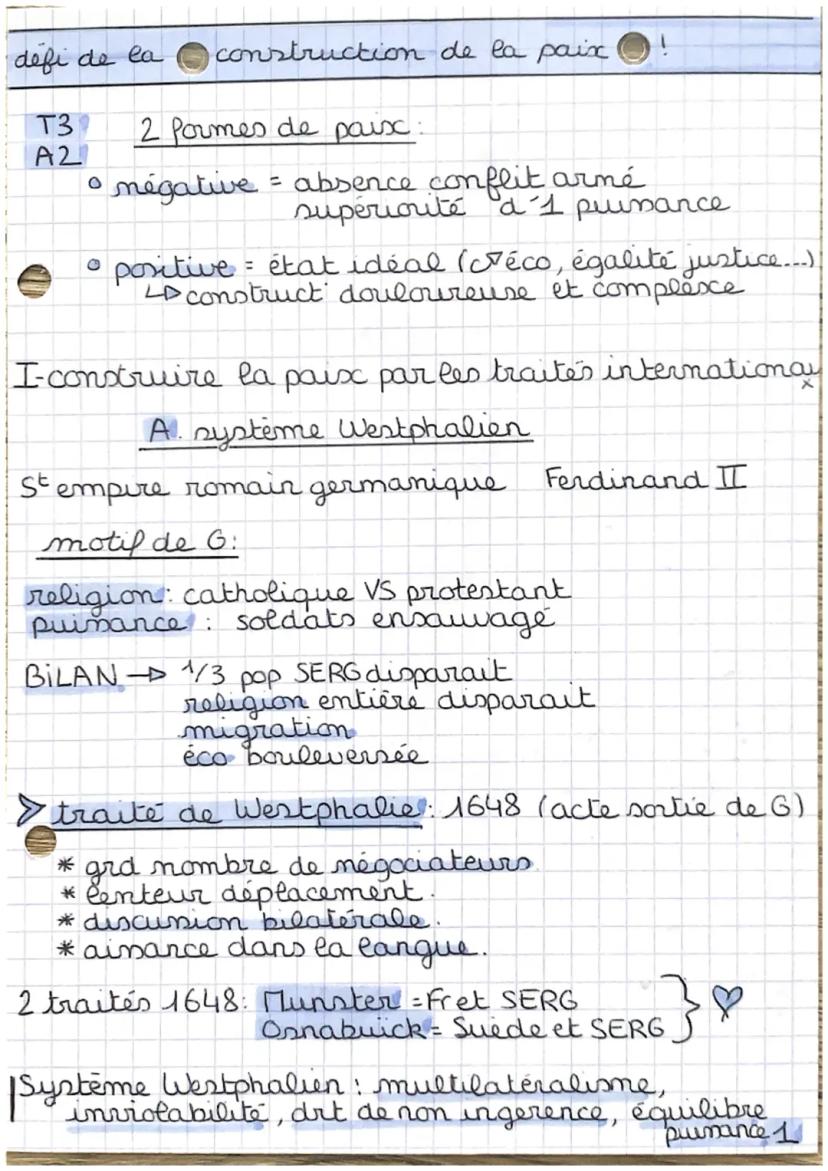 défi de la construction de la paix !
T3
A2
2 formes de paix :
négative = absence conflit armé
supériorité d'1 puissance
positive = état idéal (c↗éco, égalité justice...)
↳ construct° douloureuse et complexe
I-construire la paix par les traités internationaux
A. système Westphalien
St empire romain germanique Ferdinand II
motif de G:
religion : catholique VS protestant
puissance : soldats ensauvagé
BiLAN → 1/3 pop SERG disparait
religion entière disparait
migration
éco bouleversée
> traité de Westphalie : 1648 (acte sortie de G)
* grd nombre de négociateurs
* lenteur déplacement.
* discussion bilatérale.
* aisance dans la langue.
2 traités 1648: Munster = Fr et SERG
Osnabuick = Suède et SERG } ♡
Système Westphalien : multilatéralisme,
inviolabilité, drt de non ingerence, équilibre
puissance 1